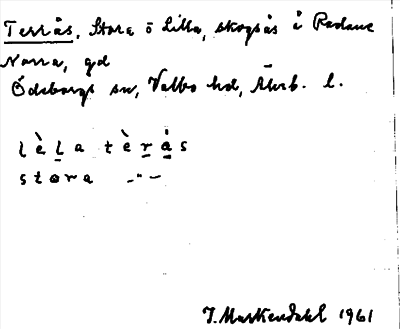 Terrås, Stora o Lilla, skogsås å Radane
Norra, gd
Ödeborgs sn, Valbo hd, Älvsb. l.
lèla tèrås
stora -"-
J. Markendahl 1961